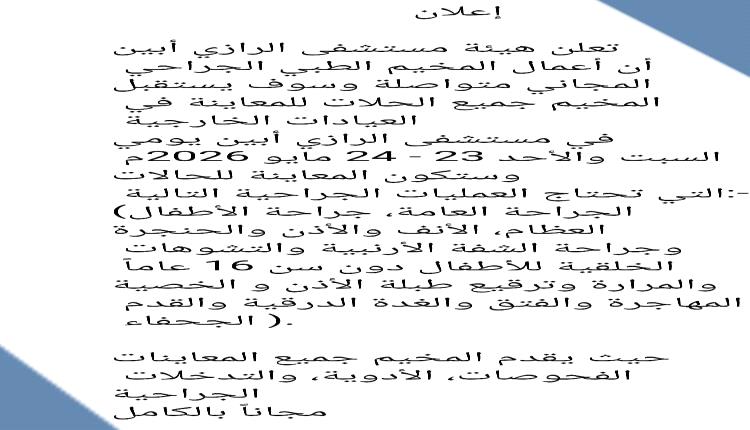 إعلان
تعلن هيئة مستشفى الرازي أبين
أن أعمال المخيم الطبي الجراحي
المجاني متواصلة وسوف يستقبل
المخيم جميع الحلات للمعاينة في
العيادات الخارجية
في مستشفى الرازي أبين يومي
السبت والأحد 23 - 24 مايو 2026م
وستكون المعاينة للحالات
التي تحتاج العمليات الجراحية التالية:-
(الجراحة العامة، جراحة الأطفال
العظام، الأنف والأذن والحنجرة
وجراحة الشفة الأرنبية والتشوهات
الخلقية للأطفال دون سن 16 عاماً
والمرارة وترقيع طبلة الأذن و الخصية
المهاجرة والفتق والغدة الدرقية والقدم
الجحفاء ).
حيث يقدم المخيم جميع المعاينات
الفحوصات، الأدوية، والتدخلات
الجراحية
مجاناً بالكامل